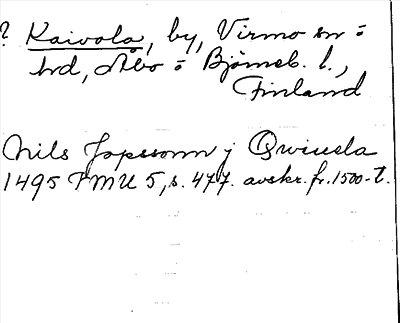 ? Kaivola, by, Virmo sn o
hd, Åbo o Björneb. l.,
Finland
Nils Jopssonn j Qwiuela
1495 FMU 5, s. 477. avskr. fr. 1500-t.